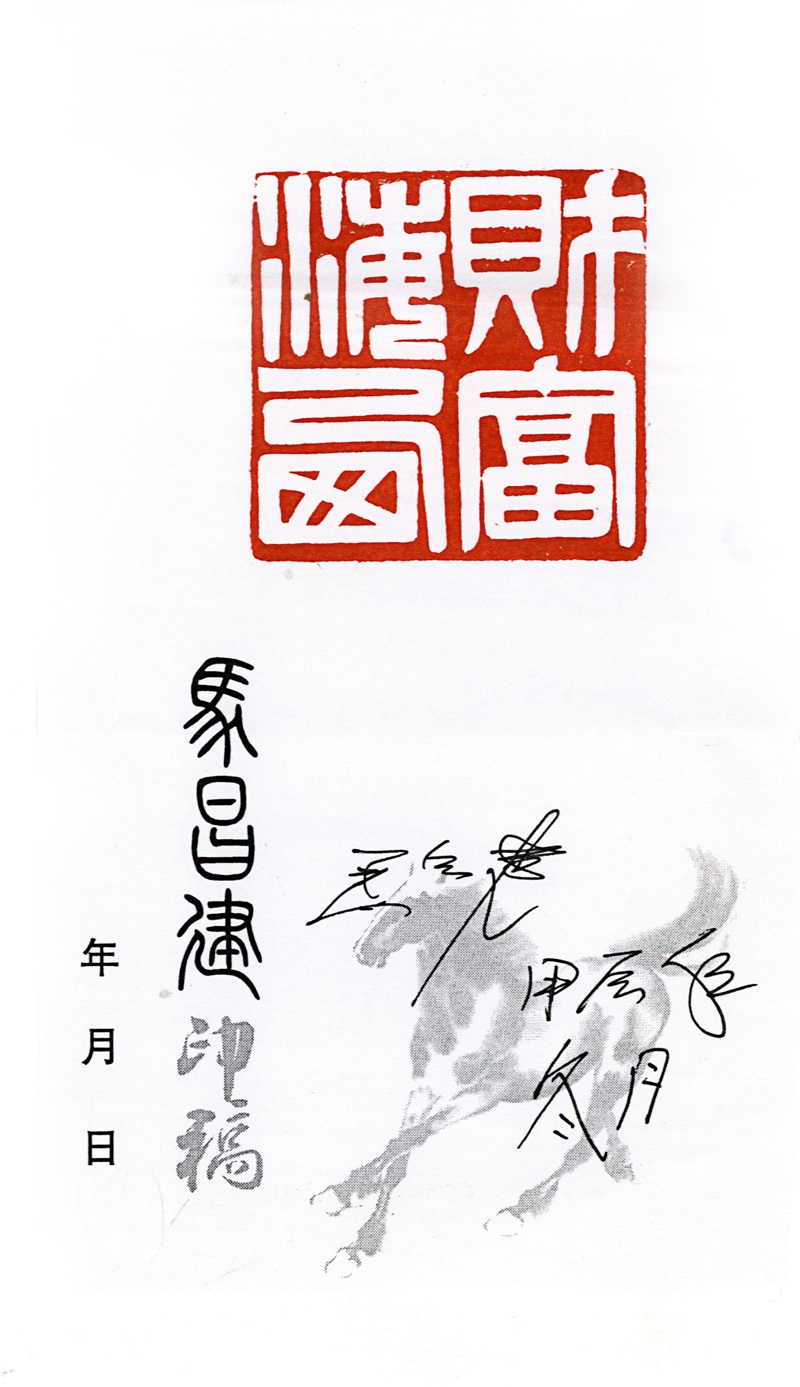 財富
馬昌建
印稿
年 月 日
馬昌建
甲辰年
冬月